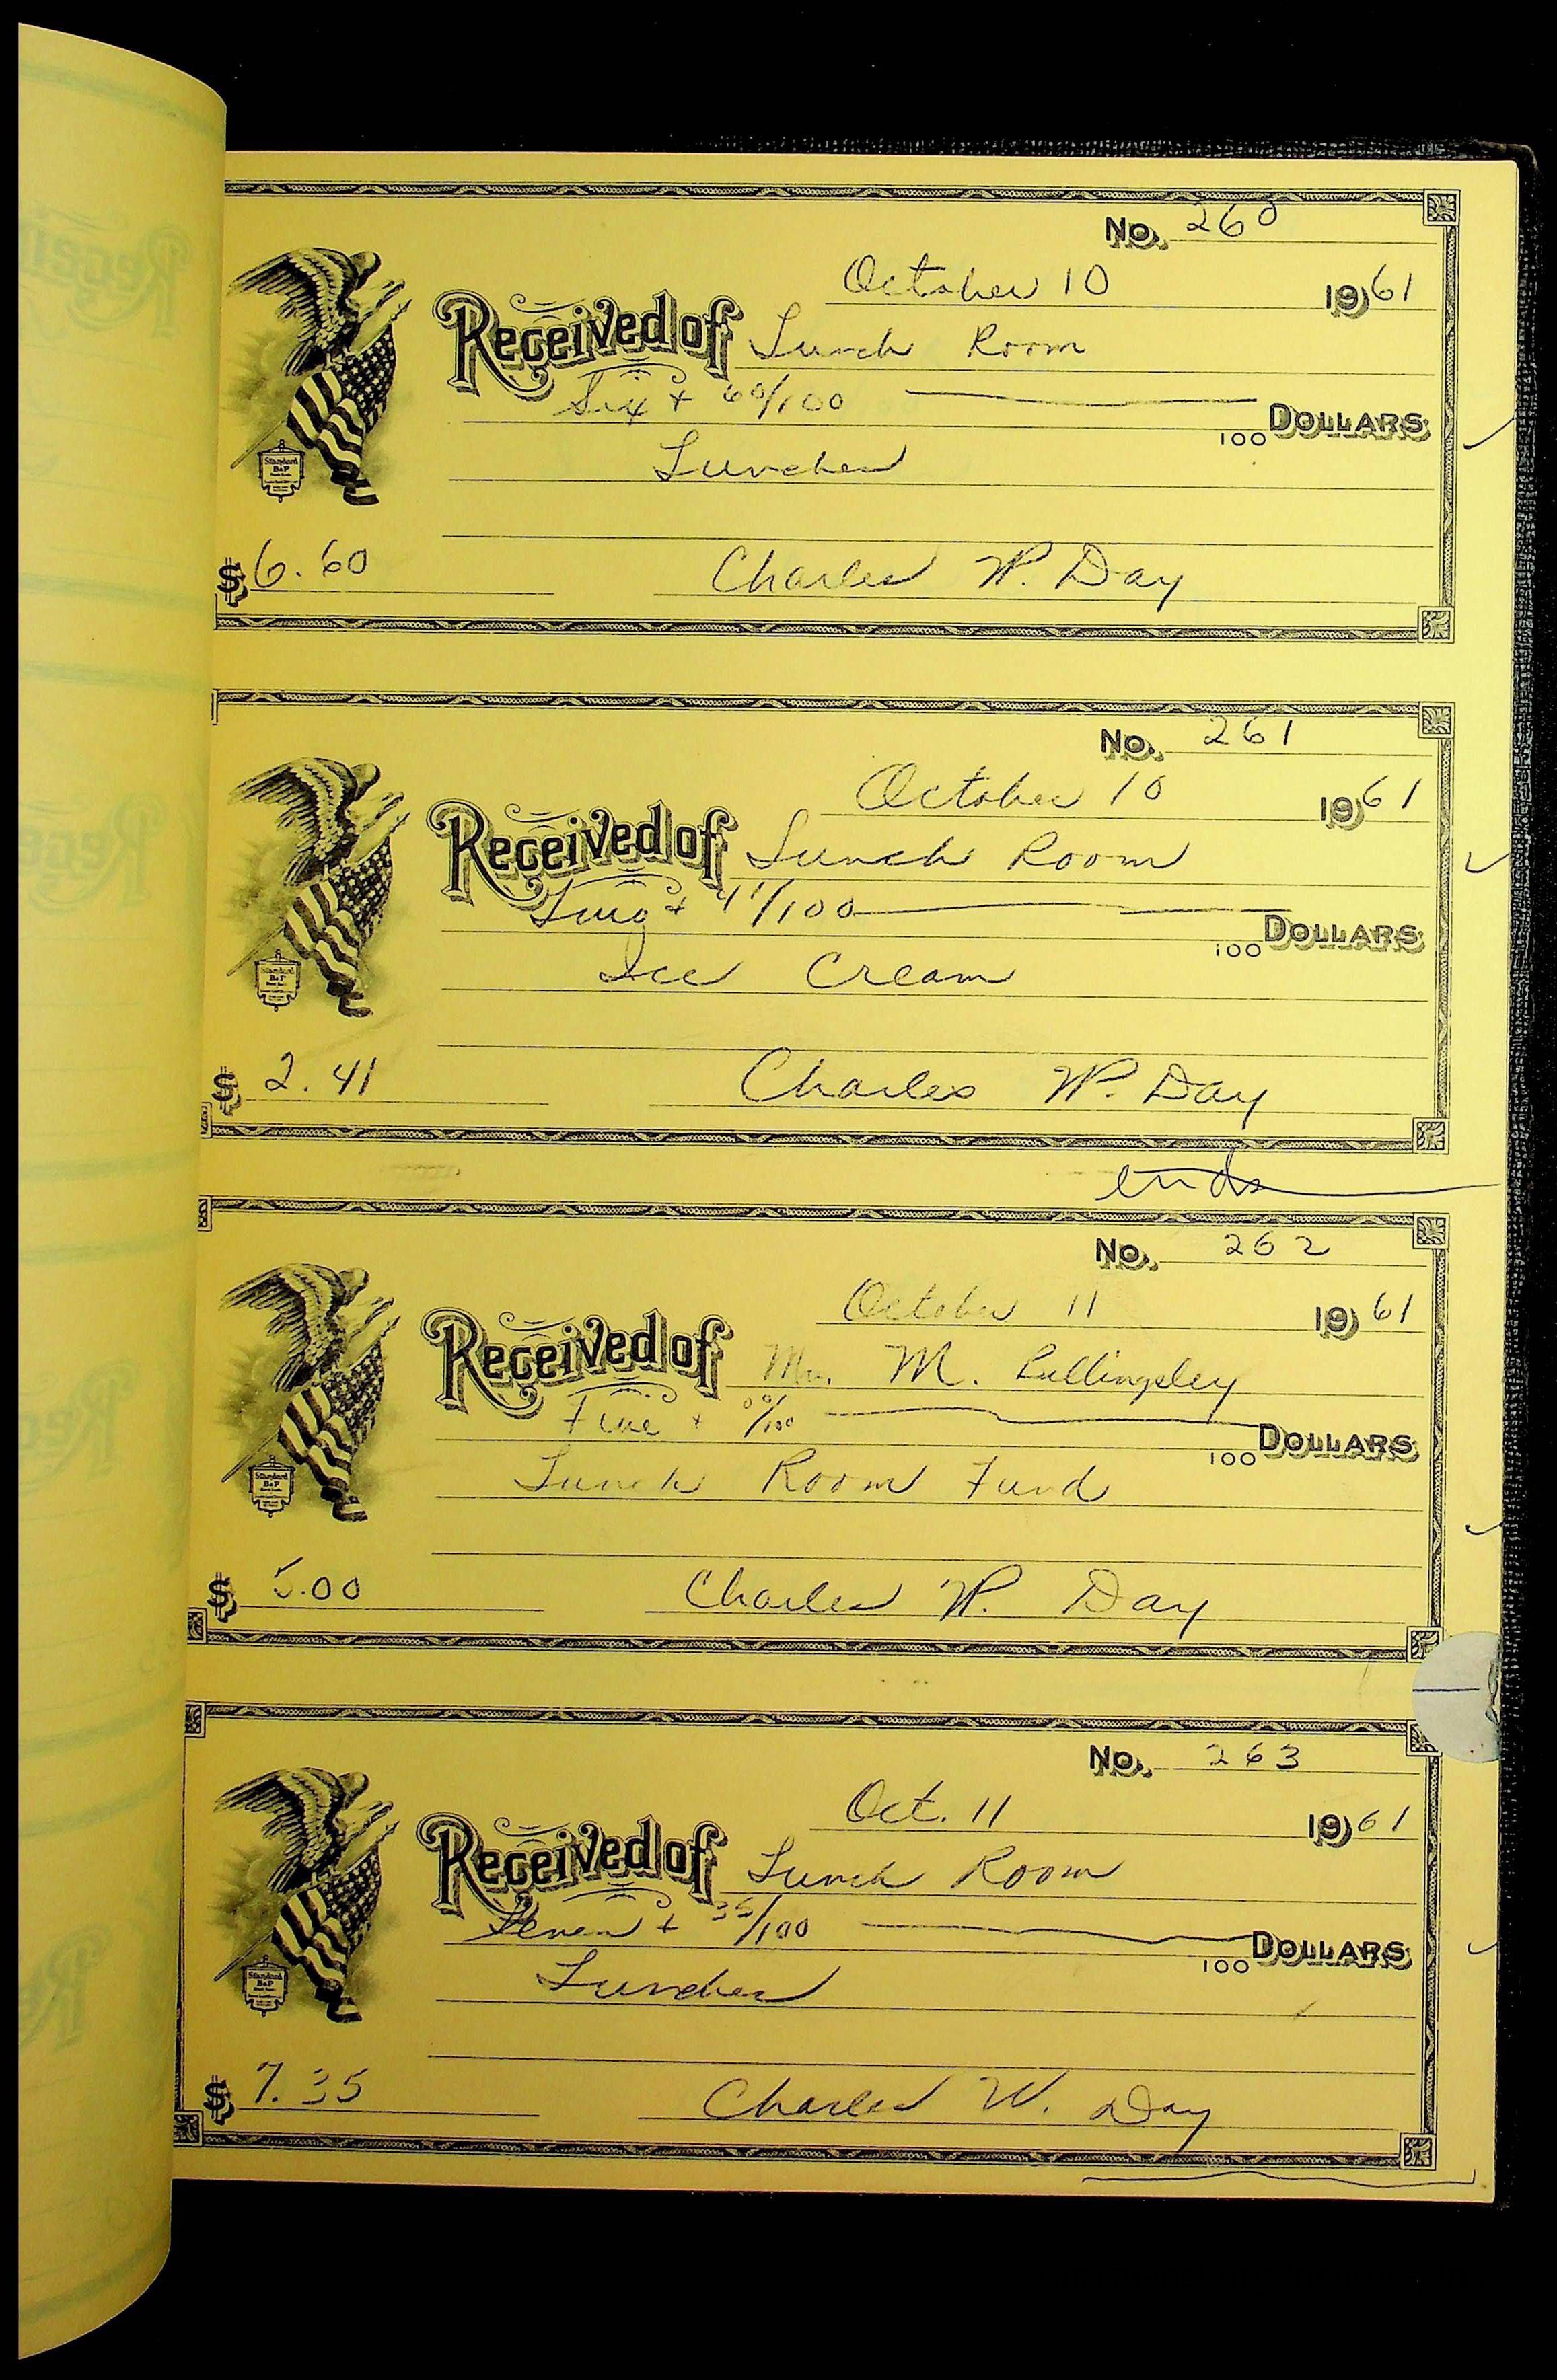 No. 260
October 10 1961
Received of Lunch Room
Six + 60/100 100 DOLLARS
Lunches
$ 6.60 Charles W. Day
No. 261
October 10 1961
Received of Lunch Room
Two + 41/100 100 DOLLARS
Ice Cream
$ 2.41 Charles W. Day
ends
No. 262
October 11 1961
Received of M.
Five + 00/100 100 DOLLARS
Lunch Room Fund
$ 5.00 Charles W. Day
No. 263
Oct. 11 1961
Received of Lunch Room
Seven + 35/100 100 DOLLARS
Lunches
$ 7.35 Charles W. Day